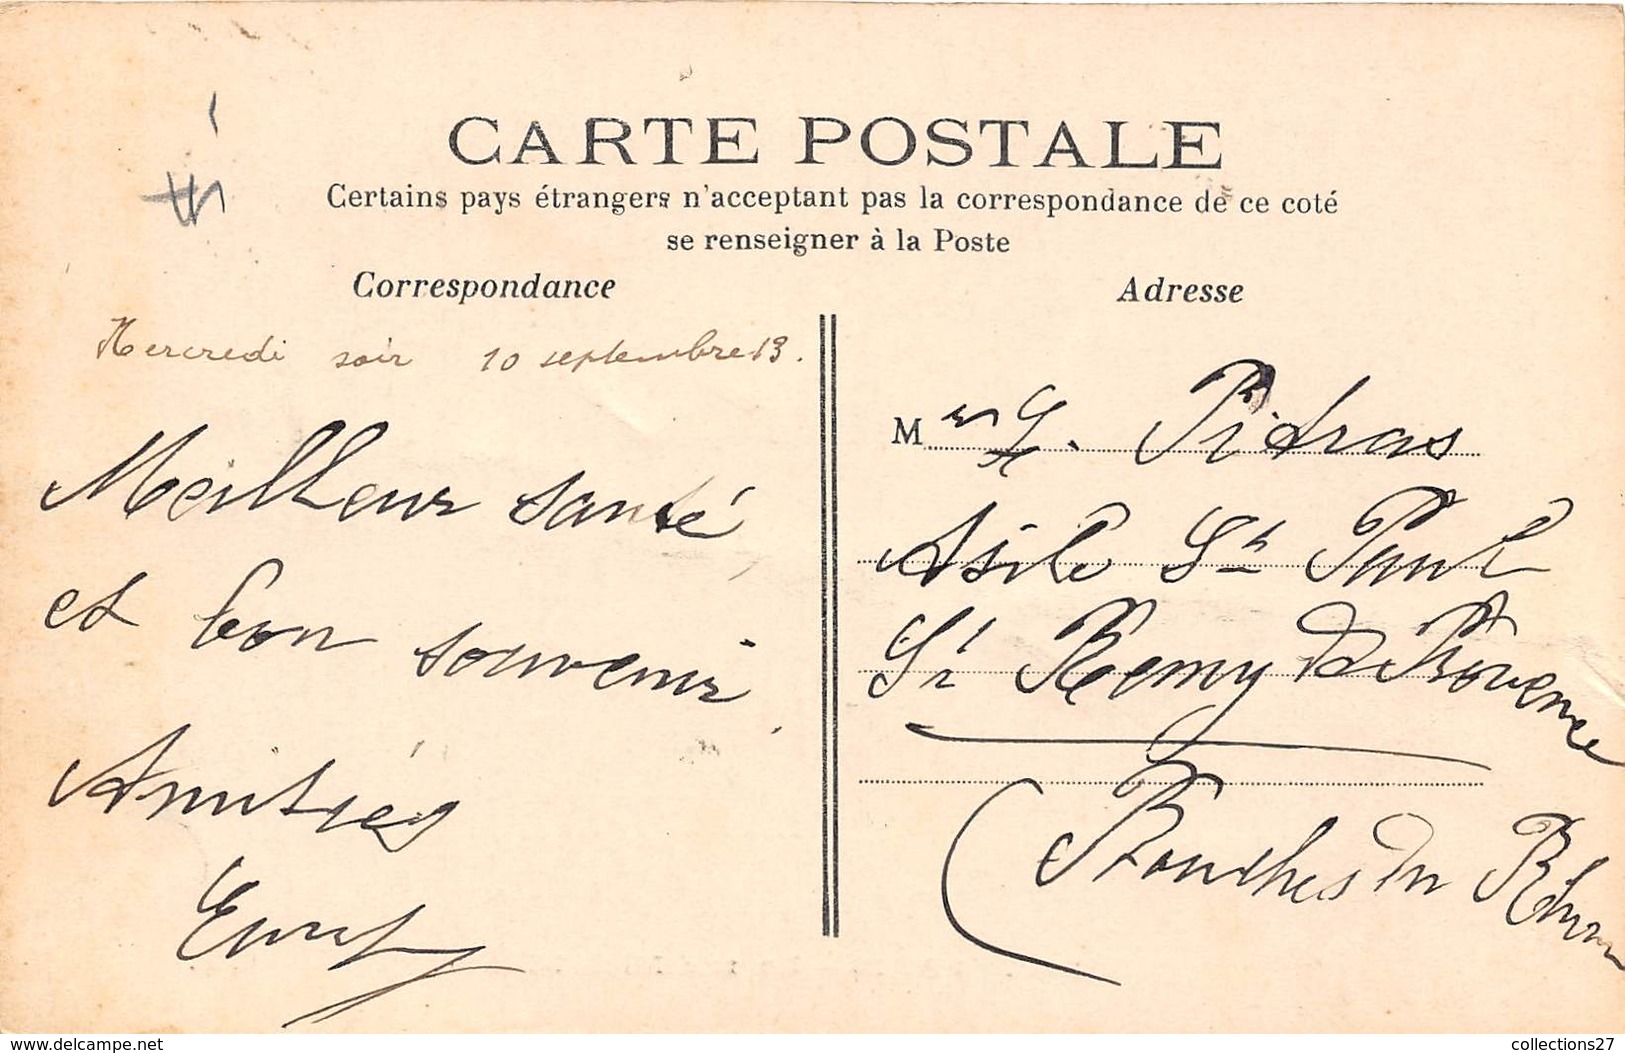 CARTE POSTALE
Certains pays étrangers n'acceptant pas la correspondance de ce coté
se renseigner à la Poste
Correspondance
Mercredi soir 10 septembre 13.
Meilleur santé
et bon souvenir.
Amitiés
Adresse
M
Asile St Paul
St Remy de Provence
(Bouches du Rhône
www.delcampe.net
collections27